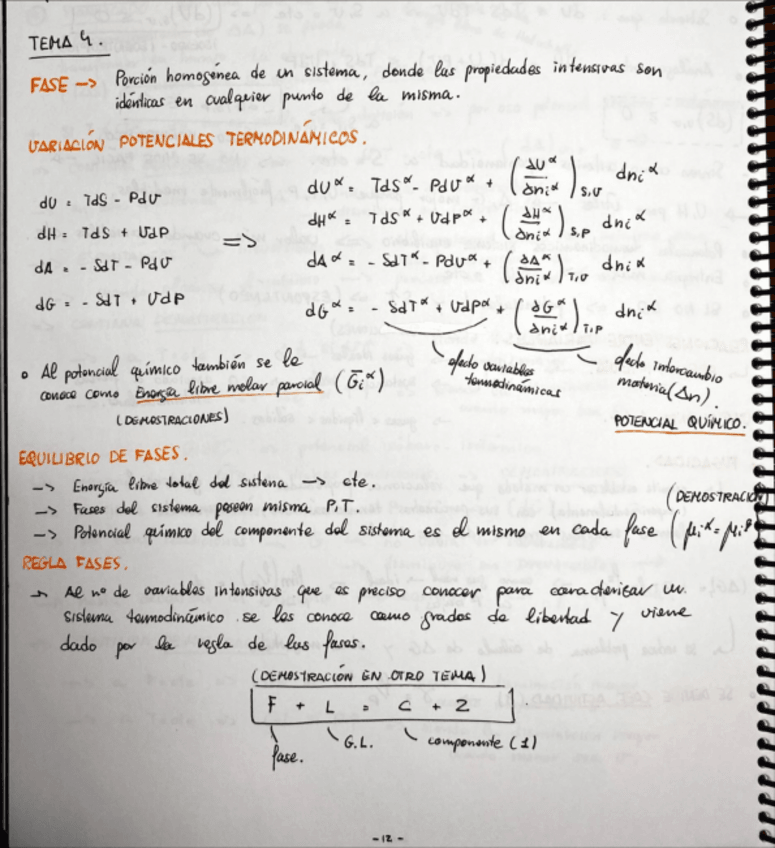 TEMA 4.
FASE —> Porción homogénea de un sistema, donde las propiedades intensivas son
idénticas en cualquier punto de la misma.
VARIACIÓN POTENCIALES TERMODINÁMICOS.
dU = TdS - PdV
dH = TdS + VdP
dA = - SdT - PdV
dG = - SdT + VdP
=>
dU^α = TdS^α - PdV^α + (∂U^α/∂ni^α)S,V dni^α
dH^α = TdS^α + VdP^α + (∂H^α/∂ni^α)S,P dni^α
dA^α = - SdT^α - PdV^α + (∂A^α/∂ni^α)T,V dni^α
dG^α = - SdT^α + VdP^α + (∂G^α/∂ni^α)T,P dni^α
efecto variables
termodinámicas
efecto intercambio
materia (Δn).
POTENCIAL QUÍMICO.
o Al potencial químico también se le
conoce como Energía libre molar parcial (G̅i^α)
(DEMOSTRACIONES)
EQUILIBRIO DE FASES.
—> Energía libre total del sistema —> cte.
—> Fases del sistema poseen misma P, T.
(DEMOSTRACIÓN)
—> Potencial químico del componente del sistema es el mismo en cada fase (μi^α = μi^β
REGLA FASES.
→ Al nº de variables intensivas que es preciso conocer para caracterizar un
sistema termodinámico se les conoce como grados de libertad y viene
dado por la regla de las fases.
(DEMOSTRACIÓN EN OTRO TEMA)
F + L = C + 2
fase.
G.L.
componente (1)
-12-